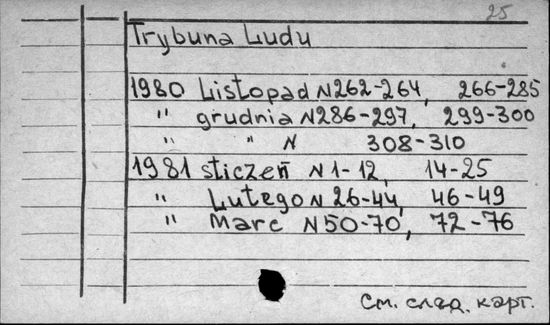 25
Trybuna Ludu
1980 Listopad N262-264, 266-285
" grudnia N286-297, 299-300
" " N 308-310
1981 sticzeń N1-12, 14-25
" Lutego N 26-44, 46-49
" Marc N50-70, 72-76
См. след. карт.